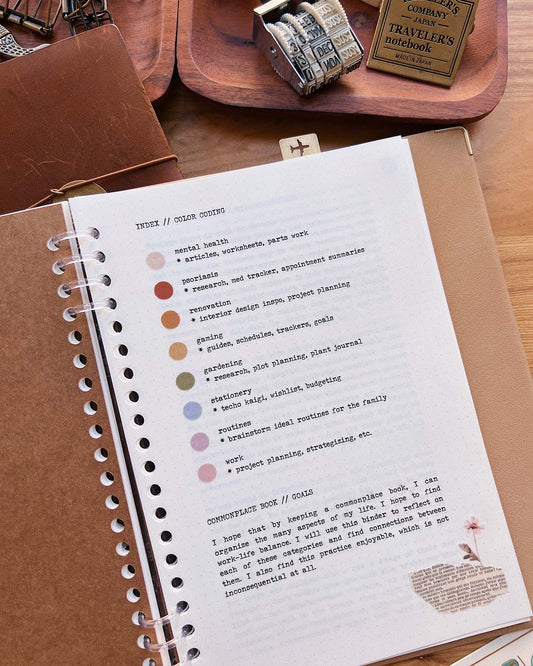 TRAVELER'S
COMPANY
JAPAN
TRAVELER'S
notebook
MADE IN JAPAN
DEC
INDEX // COLOR CODING
mental health
* articles, worksheets, parts work
psoriasis
* research, med tracker, appointment summaries
renovation
* interior design inspo, project planning
gaming
* guides, schedules, trackers, goals
gardening
* research, plot planning, plant journal
stationery
* techo kaigi, wishlist, budgeting
routines
* brainstorm ideal routines for the family
work
* project planning, strategizing, etc.
COMMONPLACE BOOK // GOALS
I hope that by keeping a commonplace book, I can
organize the many aspects of my life. I hope to find
work-life balance. I will use this binder to reflect on
each of these categories and find connections between
them. I also find this practice enjoyable, which is not
inconsequential at all.